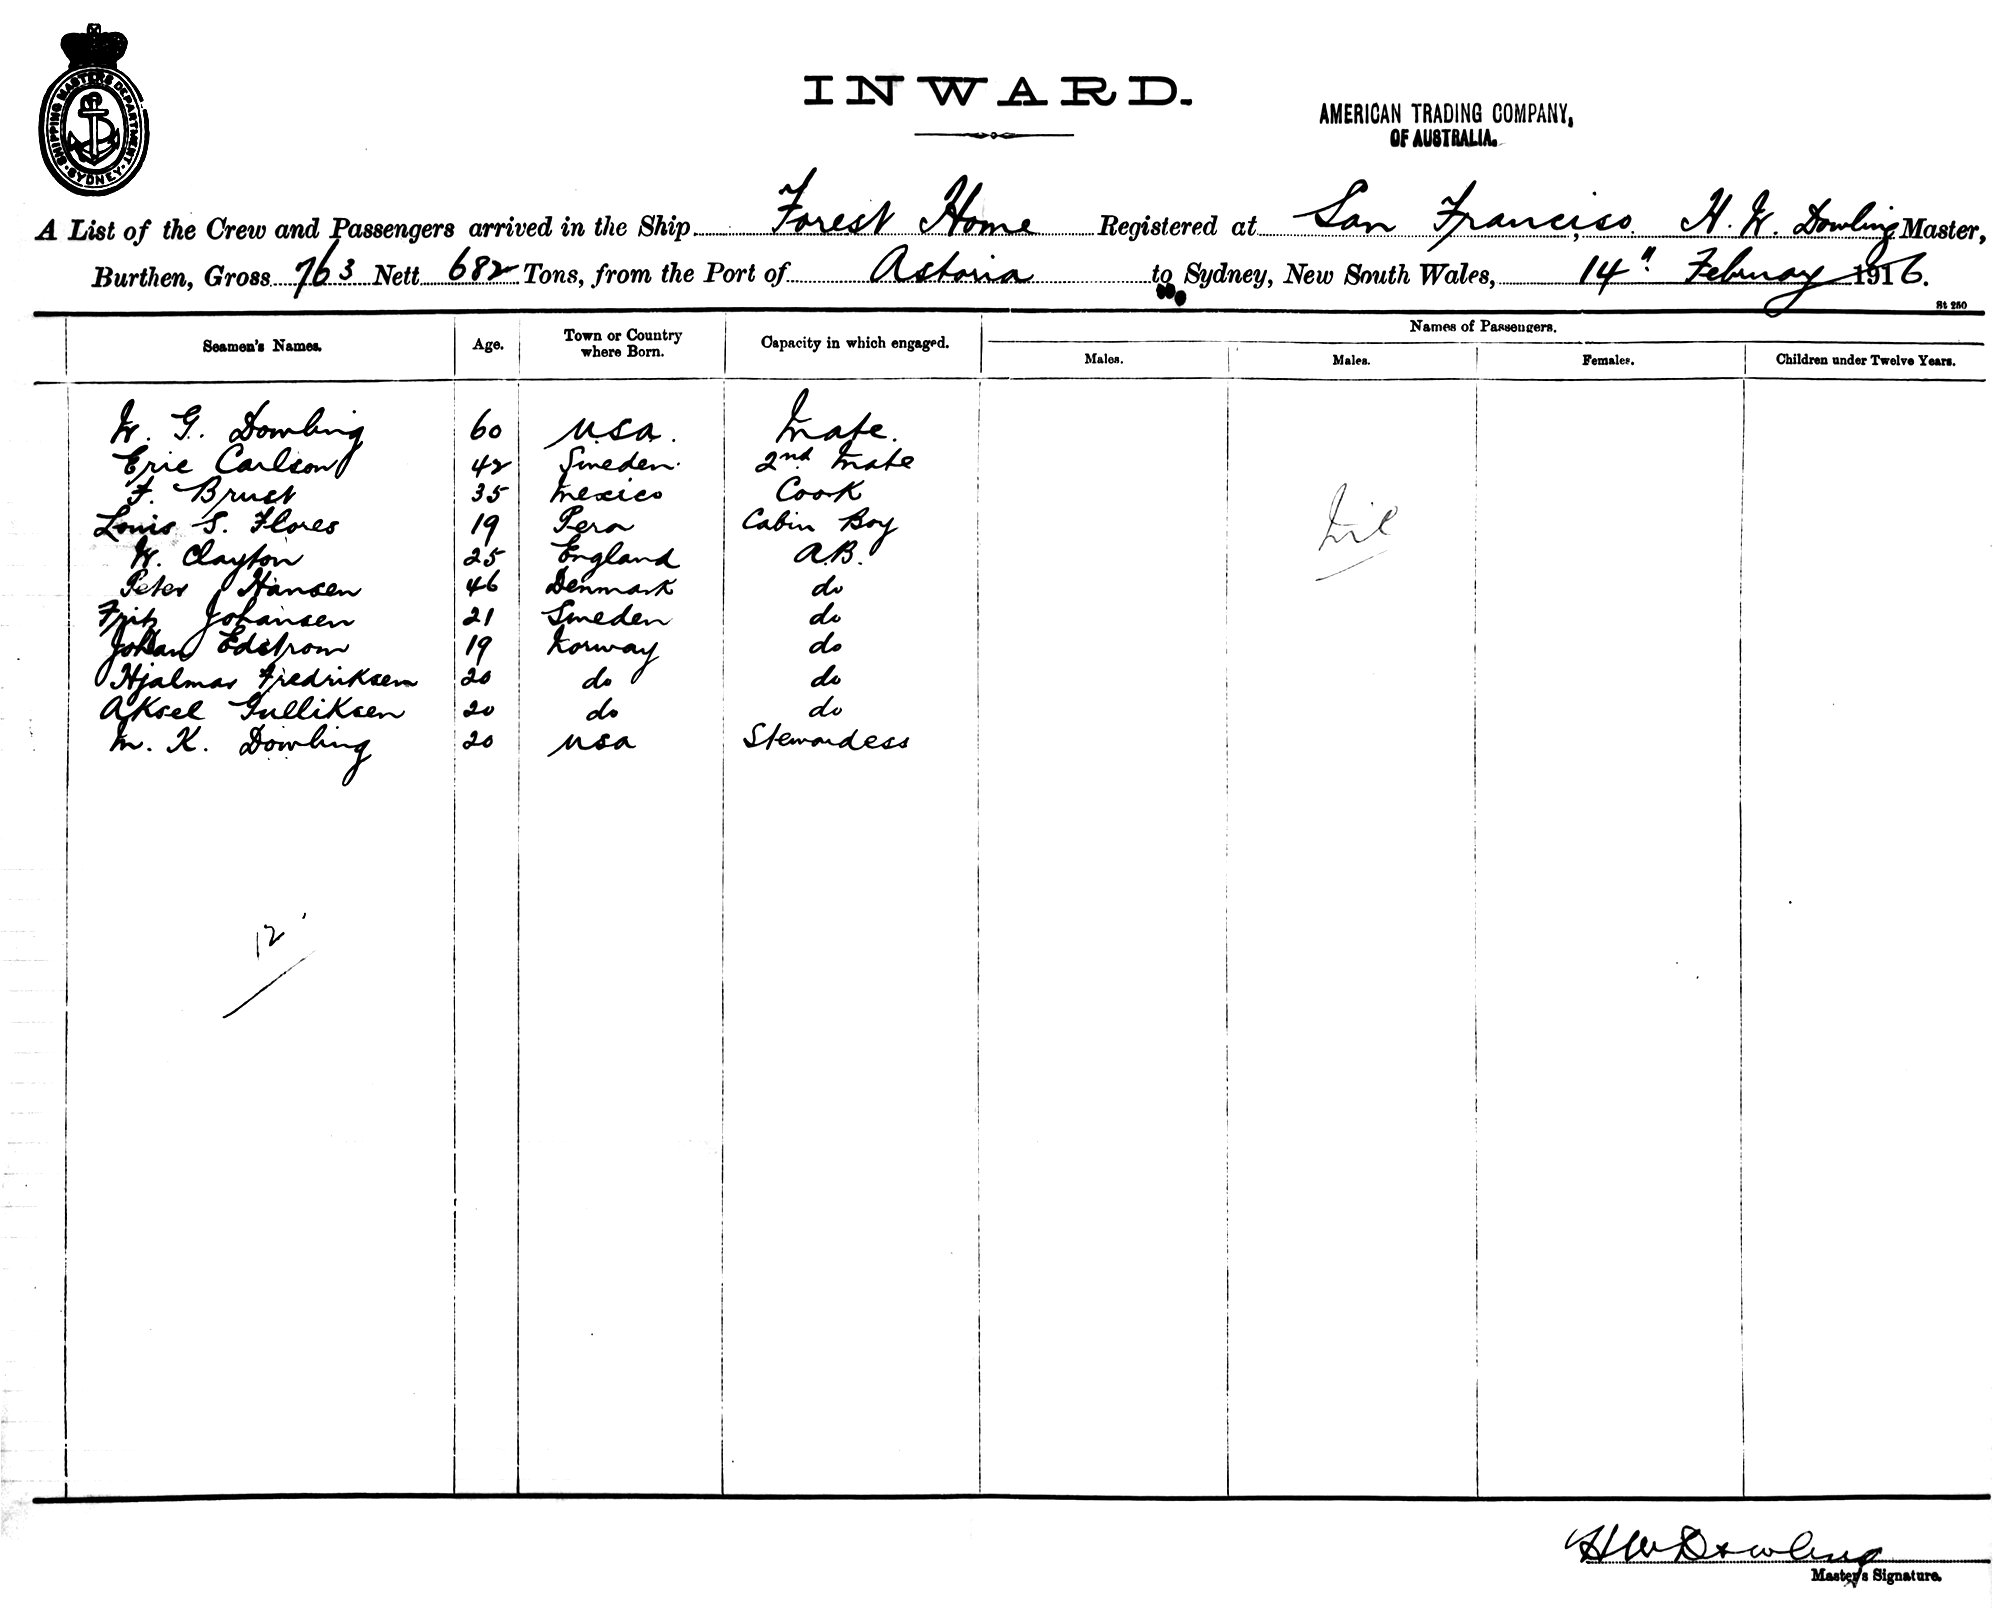 SHIPPING MASTERS DEPARTMENT
SYDNEY
INWARD.
AMERICAN TRADING COMPANY,
OF AUSTRALIA.
A List of the Crew and Passengers arrived in the Ship Forest Home Registered at San Francisco. H. W. Dowling Master,
Burthen, Gross 763 Nett 682 Tons, from the Port of Astoria to Sydney, New South Wales, 14" February 1916.
St 250
Names of Passengers.
Seamen's Names. Age. Town or Country where Born. Capacity in which engaged. Males. Males. Females. Children under Twelve Years.
W. G. Dowling 60 U.S.A. Mate.
Eric Carlson 42 Sweden. 2nd Mate
F. Brust 35 Mexico Cook
Louis S. Flores 19 Peru Cabin Boy
W. Clayton 25 England A.B.
Peter Hansen 46 Denmark do
Fritz Johansen 21 Sweden do
Johan Edstrom 19 Norway do
Hjalmar Fredriksen 20 do do
Aksel Gulliksen 20 do do
M. K. Dowling 20 USA Stewardess
Nil
12
HW Dowling
Master's Signature.